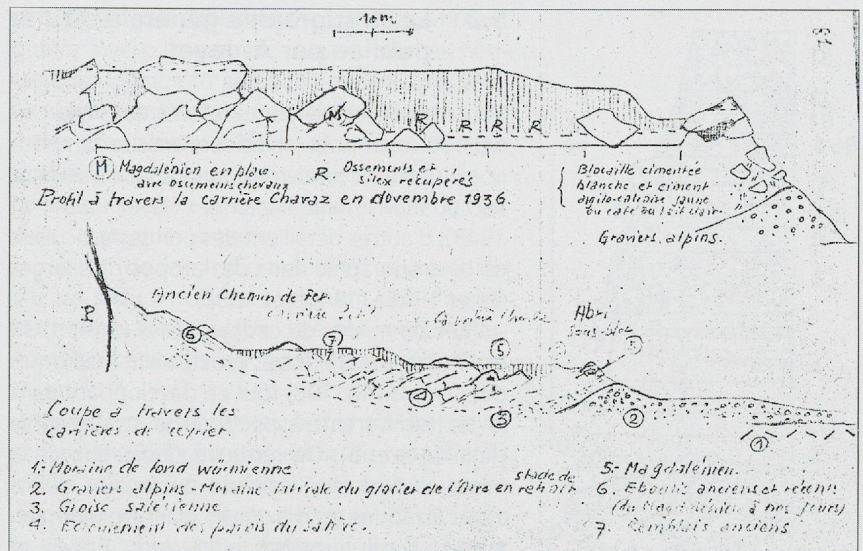 10m
79
M
R
R R R
M Magdalénien en place
avec ossements chevaux
R. Ossements et
silex récupérés
Blocaille cimentée
blanche et ciment
argilo-calcaire jaune
ou café au lait clair
Graviers alpins.
Profil à travers la carrière Chavaz en novembre 1936.
Ancien Chemin de Fer
Abri
sous-bloc
P
6
7
5
5
4
3
2
1
Coupe à travers les
carrières de Veyrier.
1- Moraine de fond würmienne
2. Graviers alpins - Moraine latérale du glacier de l'Arve en retrait
stade de
3. Groise salévienne
4. Ecroulement des parois du Salève.
5- Magdalénien.
6. Eboulis anciens et récents
(du Magdalénien à nos jours)
7. Remblais anciens